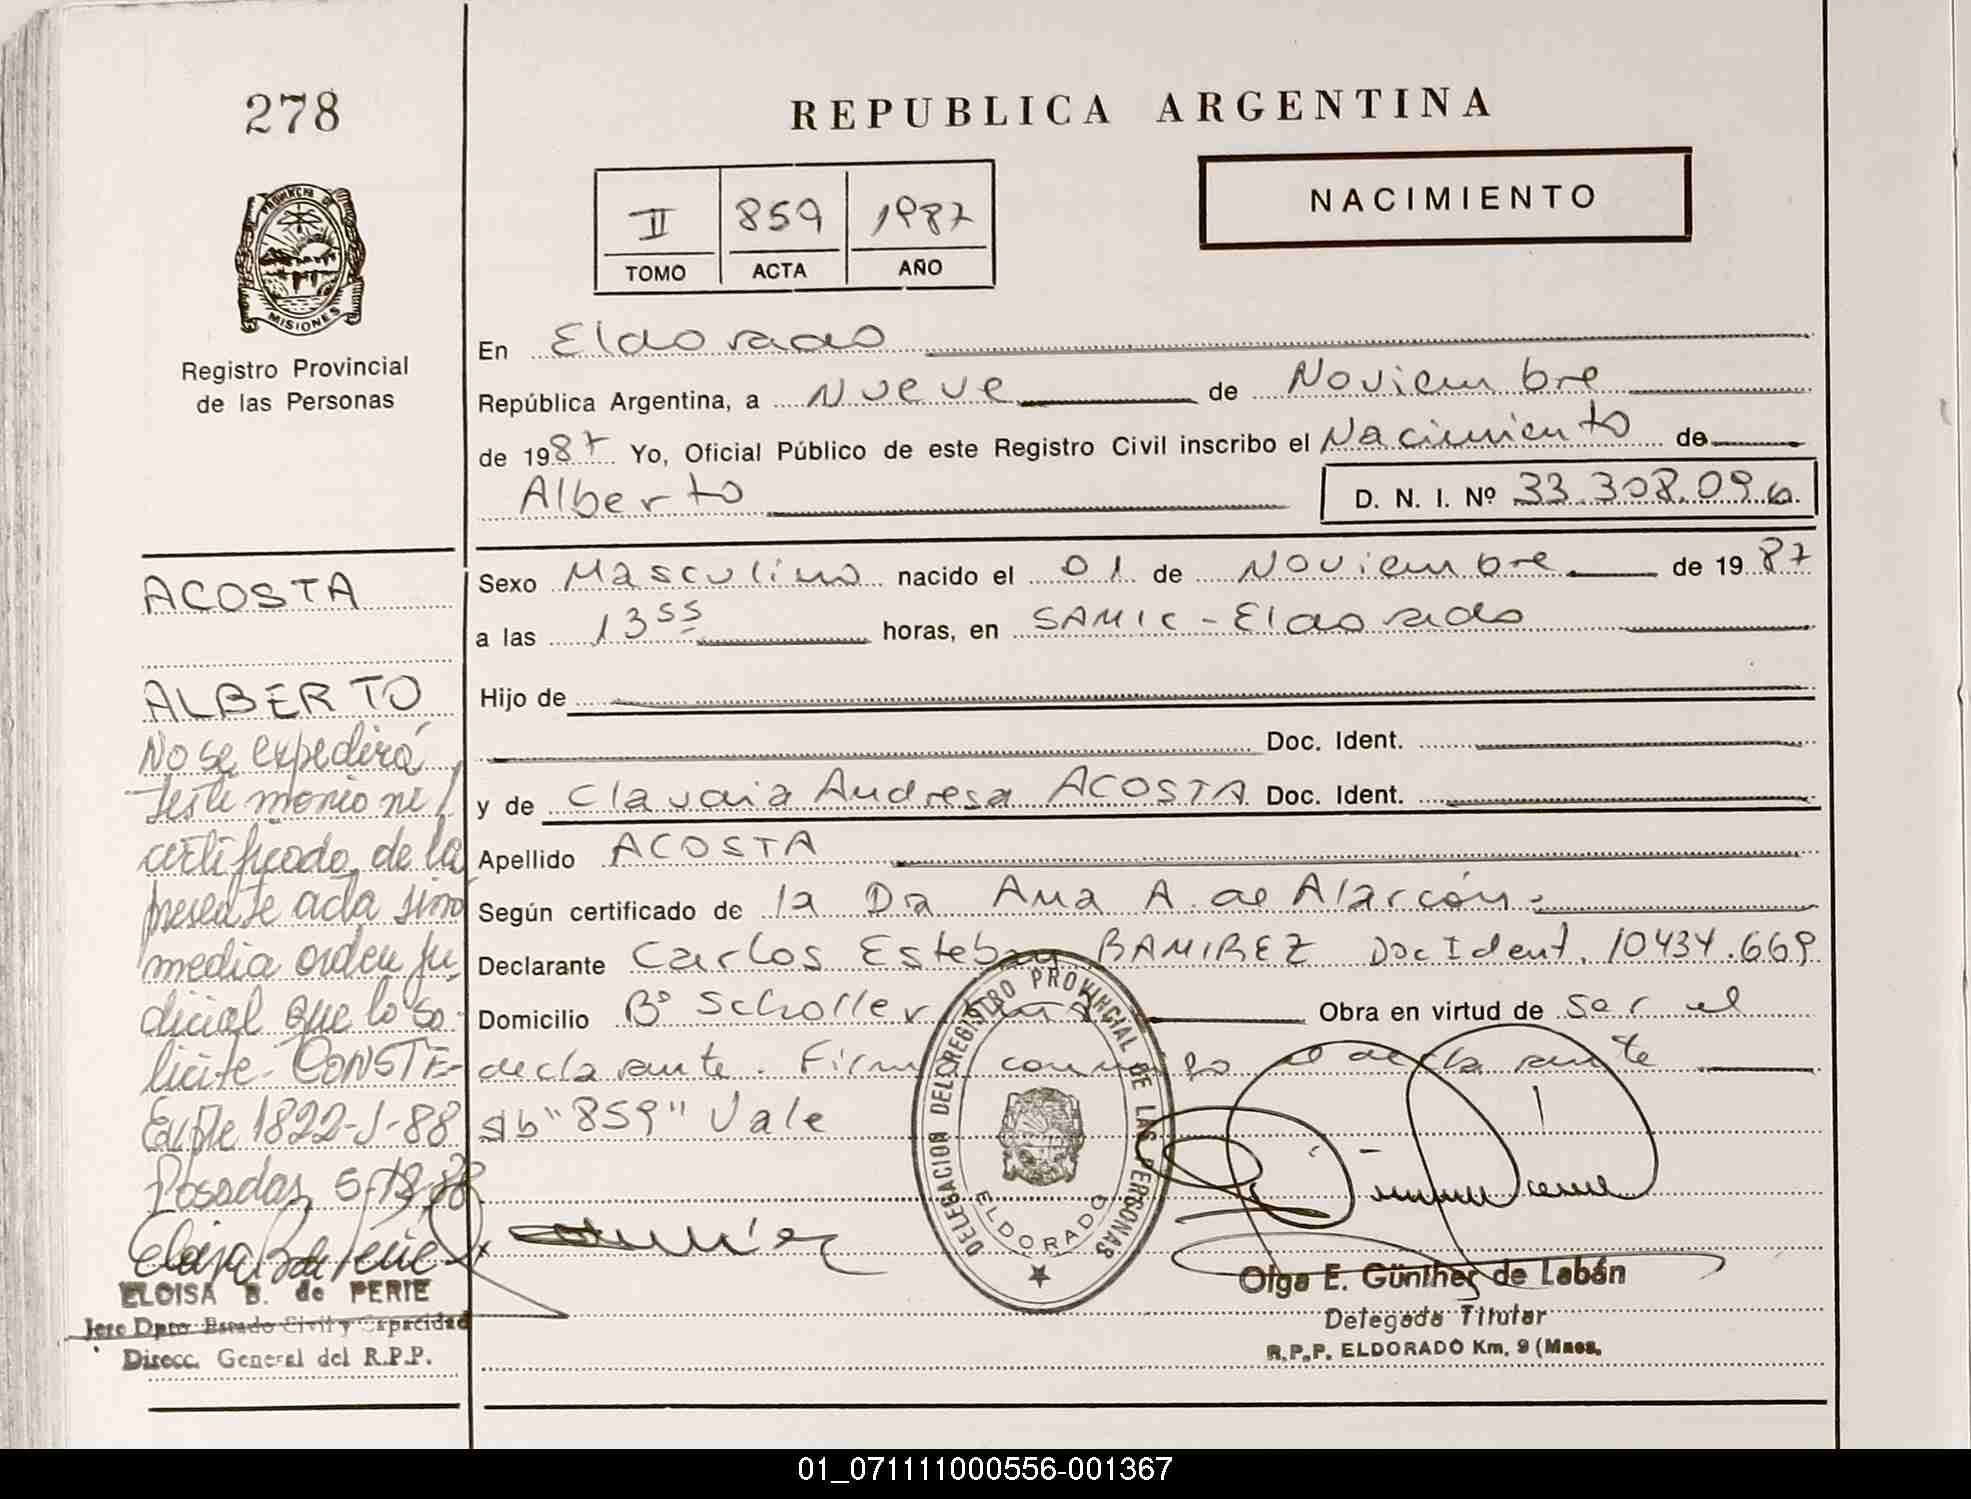 278
REPUBLICA ARGENTINA
PROVINCIA DE
MISIONES
Registro Provincial
de las Personas
II 859 1987
TOMO ACTA AÑO
NACIMIENTO
En Eldorado
República Argentina, a Nueve de Noviembre
de 1987 Yo, Oficial Público de este Registro Civil inscribo el Nacimiento de
Alberto
D. N. I. Nº 33.308.096
ACOSTA
ALBERTO
No se expedirá
testimonio ni
certificado de la
presente acta sino
media orden ju-
dicial que lo so-
licite. CONSTE-
Expte 1822-J-88
Posadas, 5-
ELOISA B. de PERIE
Jefe Dpto Estado Civil y Capacidad
Direcc. General del R.P.P.
Sexo Masculino nacido el 01 de Noviembre de 1987
a las 13 55 horas, en SAMIC - Eldorado
Hijo de
Doc. Ident.
y de Claudia Andresa ACOSTA Doc. Ident.
Apellido ACOSTA
Según certificado de la Dra Ana A. de Alarcón.
Declarante Carlos Esteban RAMIREZ Doc Ident. 10434.669
Domicilio Bº Scholler Obra en virtud de ser el
declarante. Firma conmigo el declarante
sb "859" Vale
DELEGACION DEL REGISTRO PROVINCIAL DE LAS PERSONAS
ELDORADO
Olga E. Günther de Labán
Delegada Titular
R.P.P. ELDORADO Km. 9 (Mnes.
01_071111000556-001367